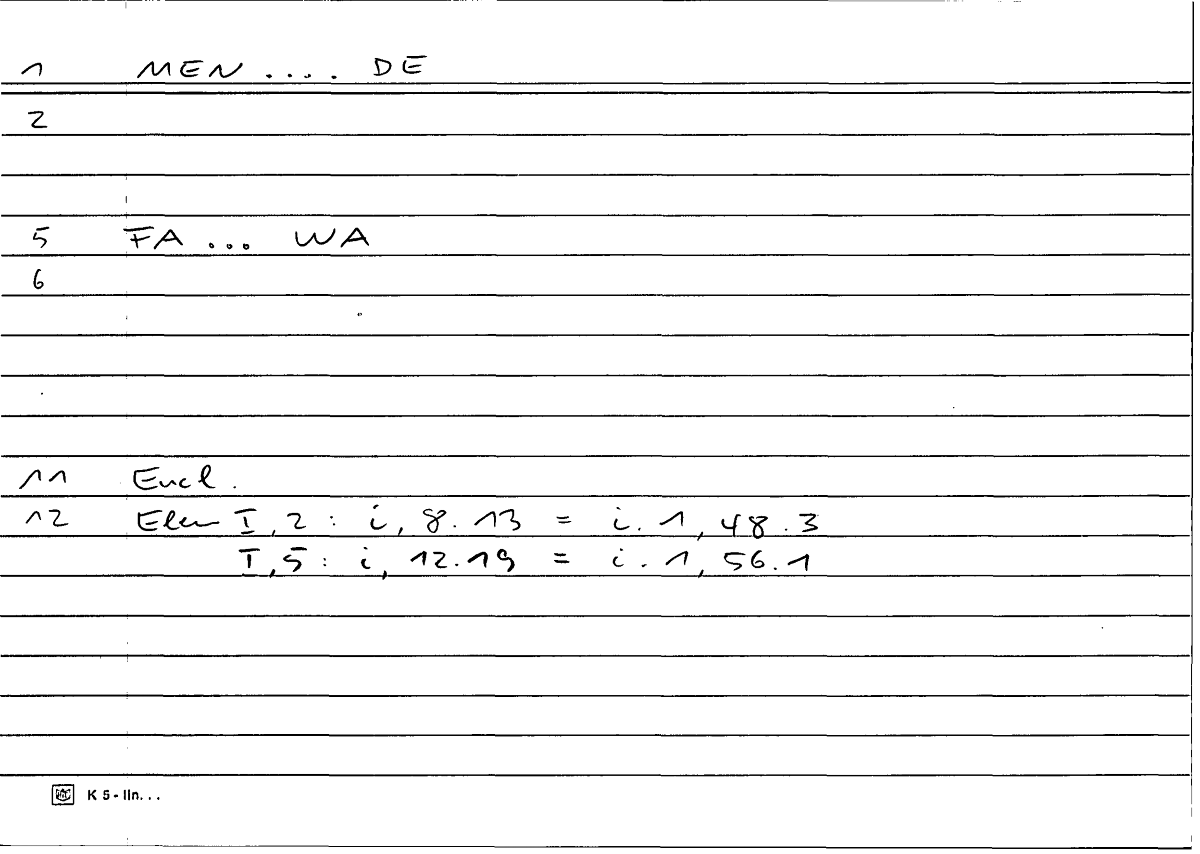 1 MEN .... DE
2
5 FA ... WA
6
11 Eucl.
12 Elem I, 2 : i, 8. 13 = i. 1, 48. 3
I, 5 : i, 12. 19 = i. 1, 56. 1
K 5 - lin. . .